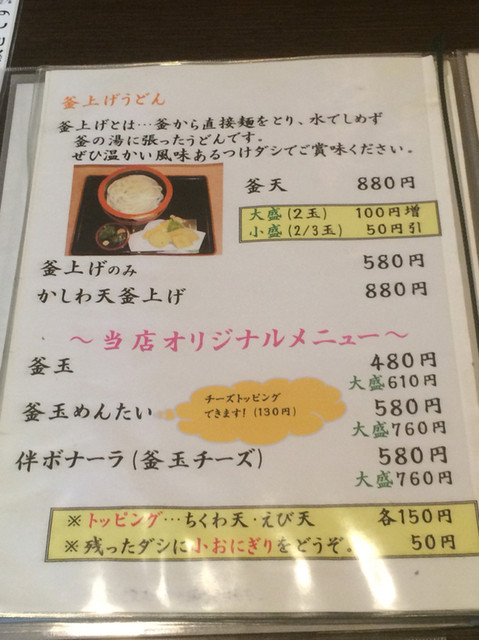 釜上げうどん
釜上げとは…釜から直接麺をとり、水でしめず
釜の湯に張ったうどんです。
ぜひ温かい風味あるつけダシでご賞味ください。
釜天 880円
大盛(2玉) 100円増
小盛(2/3玉) 50円引
釜上げのみ 580円
かしわ天釜上げ 880円
～当店オリジナルメニュー～
釜玉 480円
大盛610円
チーズトッピング
できます!(130円)
釜玉めんたい 580円
大盛760円
伴ボナーラ(釜玉チーズ) 580円
大盛760円
※トッピング…ちくわ天・えび天 各150円
※残ったダシに小おにぎりをどうぞ。 50円